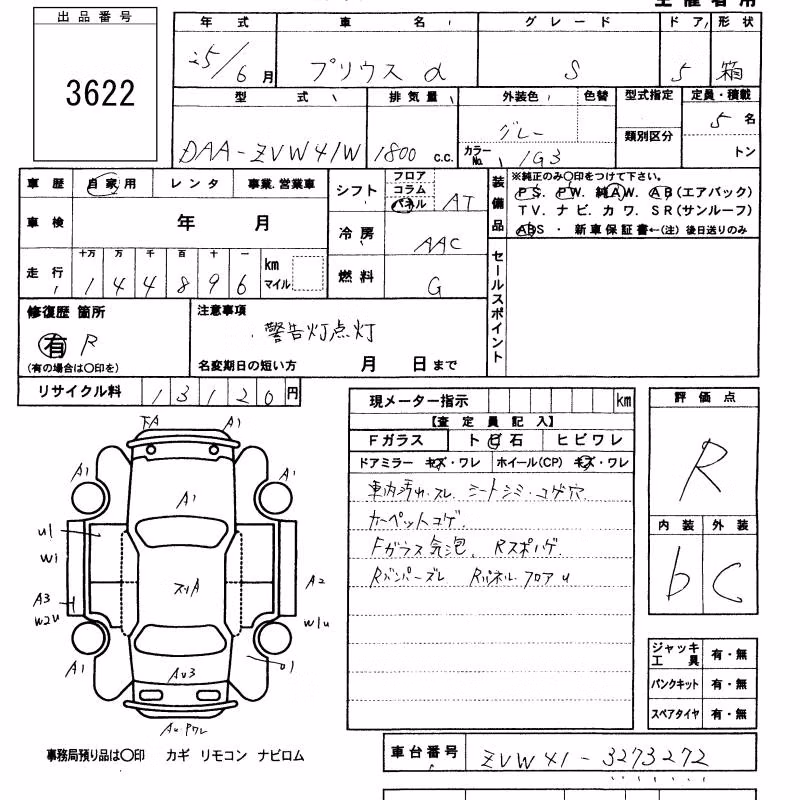 出品番号
3622
年式 車名 グレード ドア 形状
25/6月 プリウスα S 5 箱
型式 排気量 外装色 色替 型式指定 定員・積載
類別区分
DAA-ZVW41W 1800 c.c. グレー 5名
カラーNo. 1G3 トン
車歴 自家用 レンタ 事業.営業車
シフト フロア コラム パネル AT
車検 年 月
冷房 AAC
走行 十万 万 千 百 十 一 km マイル
144896
燃料 G
装備品
※純正のみ〇印をつけて下さい。
PS. PW. 純AW. AB(エアバック)
TV. ナビ. カワ. SR(サンルーフ)
ABS ・ 新車保証書←(注) 後日送りのみ
セールスポイント
修復歴 箇所
有 R
(有の場合は〇印を)
注意事項
警告灯点灯
名変期日の短い方 月 日まで
リサイクル料 13120円
現メーター指示 km
【査定員記入】
Fガラス トビ石 ヒビワレ
ドアミラー キズ・ワレ ホイール(CP) キズ・ワレ
車内汚れ.スレ. シートシミ・コゲ穴
カーペットコゲ.
Fガラス気泡、 Rスポハゲ.
Rバンパーズレ Rパネル.フロアu
評価点
R
内装 外装
b C
ジャッキ工具 有・無
パンクキット 有・無
スペアタイヤ 有・無
下A A1
A1 A1
A1
U1
W1
A3
W2U
A2
W1U
A1
AU3
U1
AU ワレ
事務局預り品は〇印 カギ リモコン ナビロム
車台番号 ZVW41-3273272